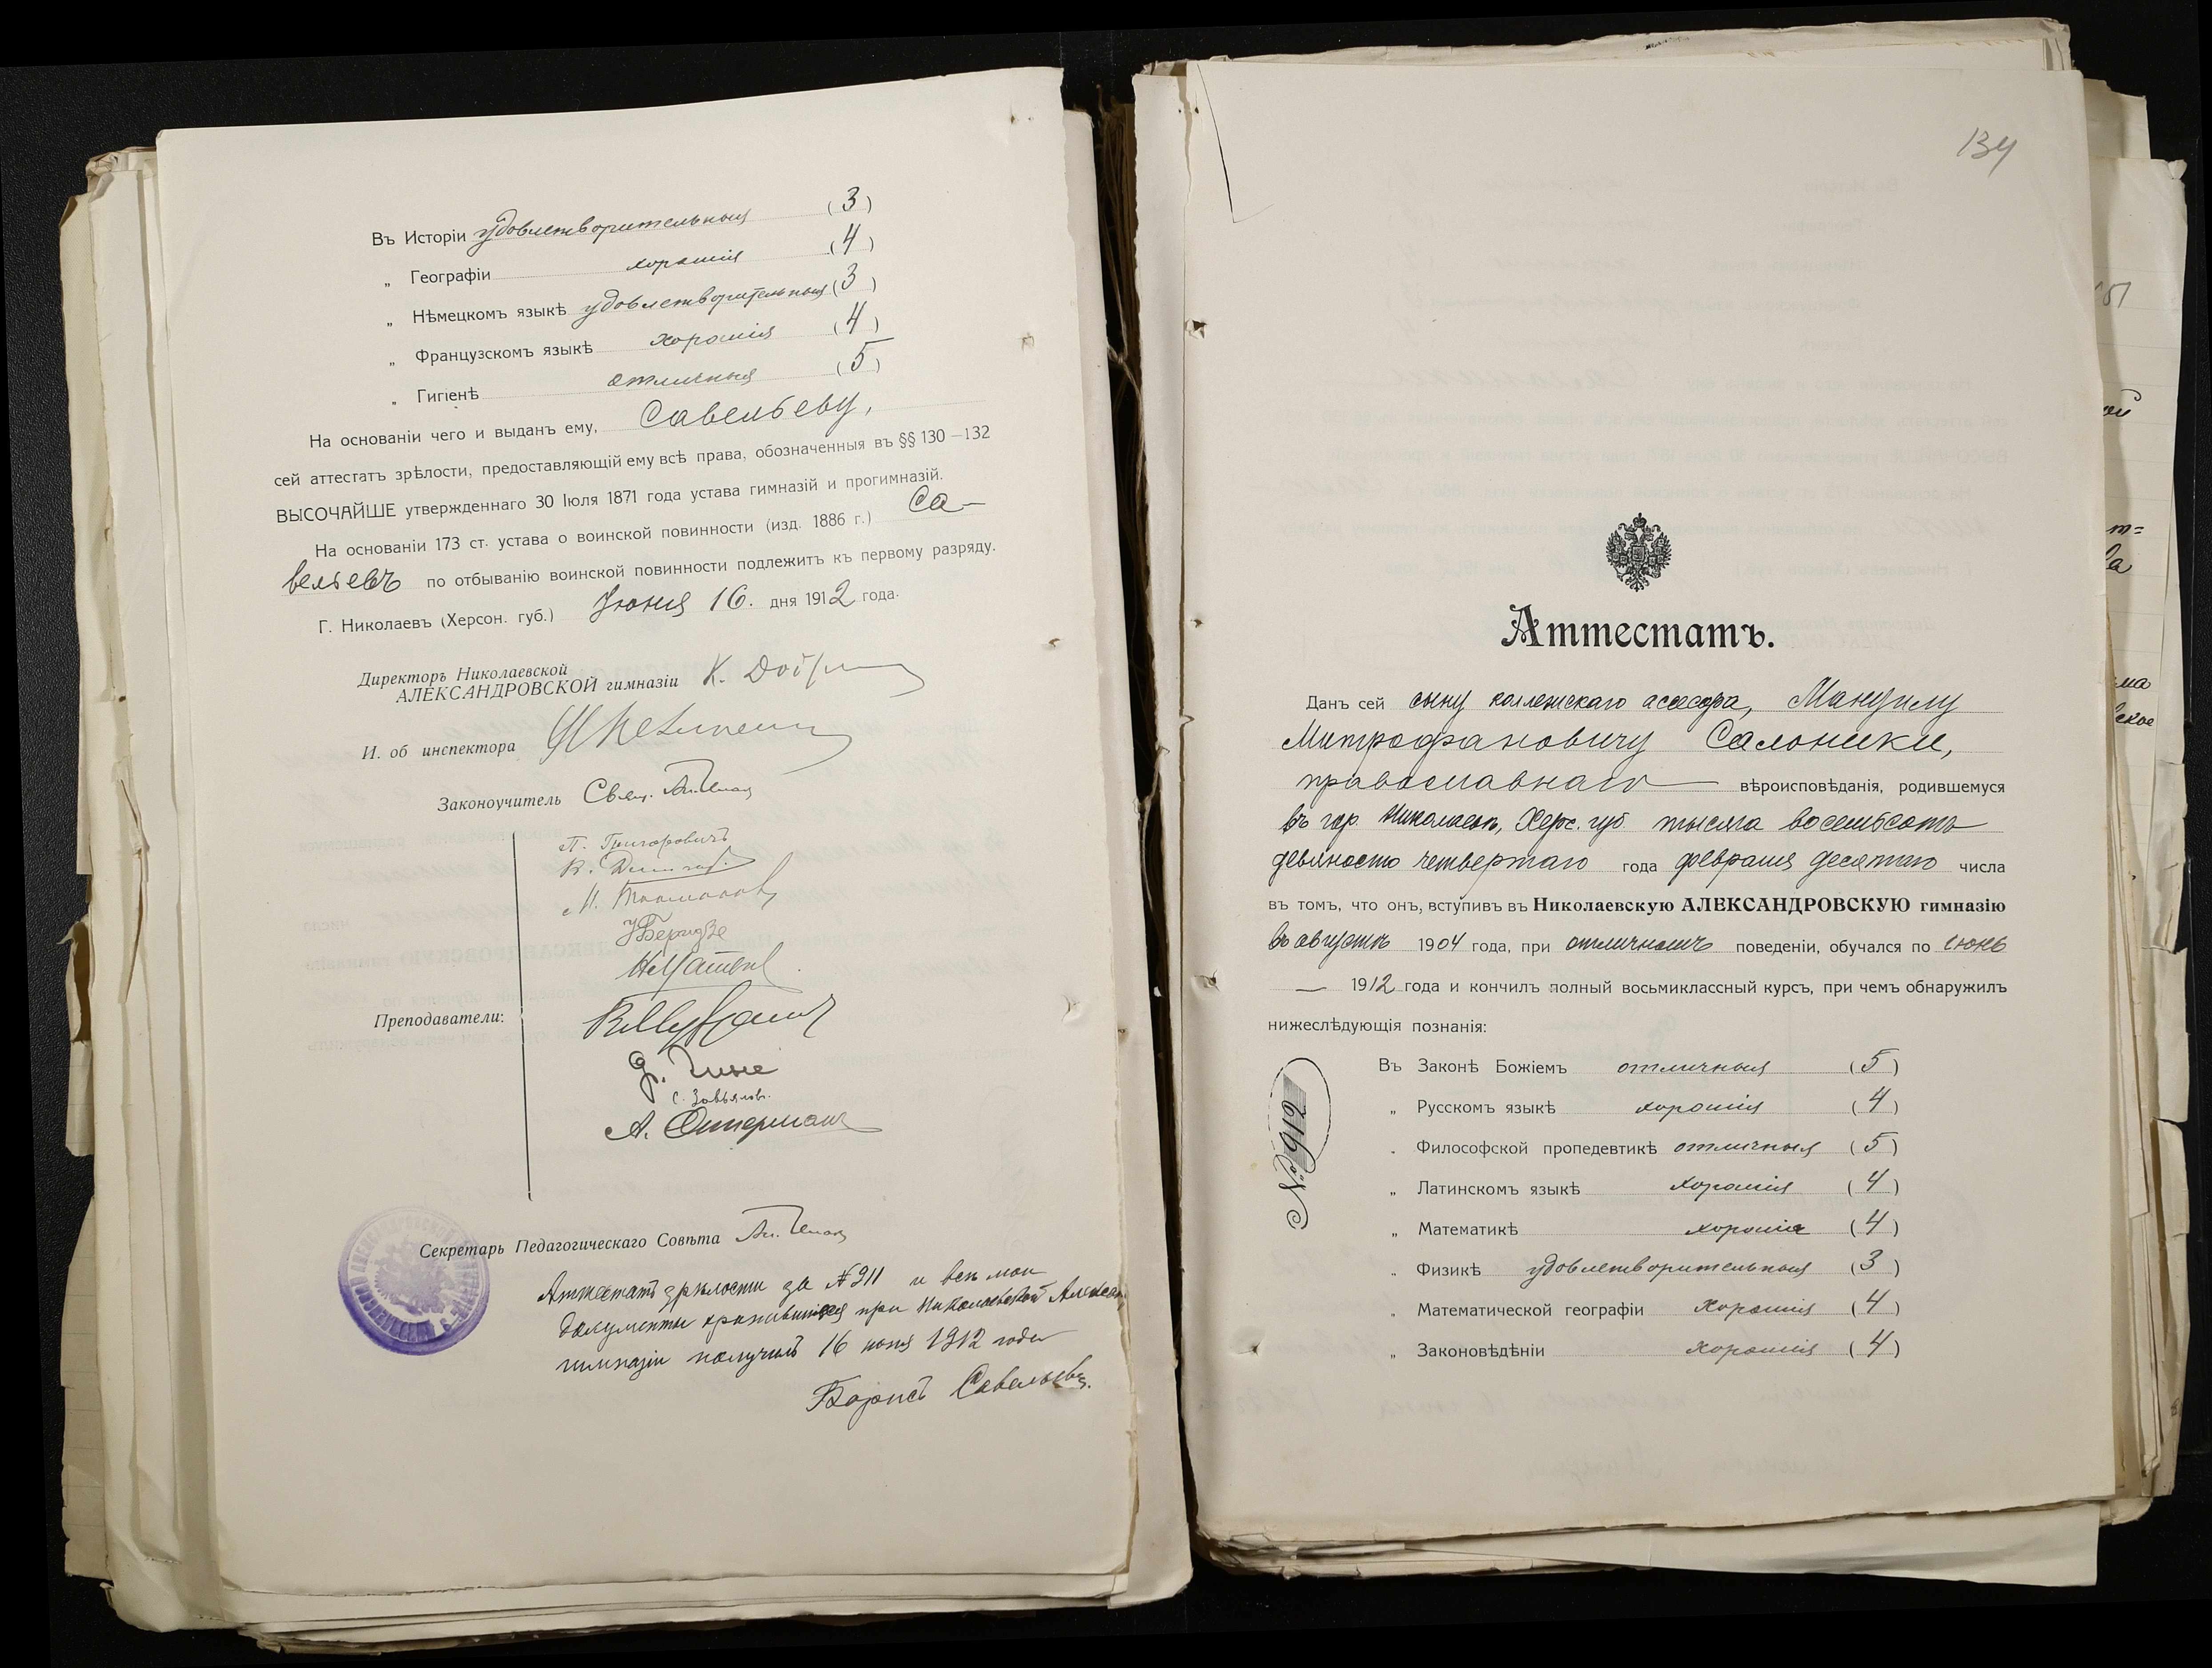 Въ Исторіи удовлетворительныя (3)
„ Географіи хорошія (4)
„ Нѣмецкомъ языкѣ удовлетворительныя (3)
„ Французскомъ языкѣ хорошія (4)
„ Гигіенѣ отличныя (5)
На основаніи чего и выданъ ему, Савельеву,
сей аттестатъ зрѣлости, предоставляющій ему всѣ права, обозначенныя въ §§ 130—132
ВЫСОЧАЙШЕ утвержденнаго 30 Іюля 1871 года устава гимназій и прогимназій.
На основаніи 173 ст. устава о воинской повинности (изд. 1886 г.) Са-
вельевъ по отбыванію воинской повинности подлежитъ къ первому разряду.
Г. Николаевъ (Херсон. губ.) Іюня 16. дня 1912 года.
Директоръ Николаевской
АЛЕКСАНДРОВСКОЙ гимназіи К.
И. об инспектора
Законоучитель Свящ.
П. Григоровичъ
В.
Н.
Беридзе
Преподаватели:
С. Завьялов.
А. Остерманъ
Секретарь Педагогическаго Совѣта
Аттестатъ зрѣлости за №911 и всѣ мои
документы хранившіеся при Николаевской
гимназіи получилъ 16 іюня 1912 года
Борисъ Савельевъ.
134
Аттестатъ.
Данъ сей сыну коллежскаго асессора, Мануилу
Митрофановичу Салоники,
православнаго вѣроисповѣданія, родившемуся
въ гор. Николаевѣ, Херс. губ. тысяча восемьсотъ
девяносто четвертаго года февраля десятаго числа
въ томъ, что онъ, вступивъ въ Николаевскую АЛЕКСАНДРОВСКУЮ гимназію
въ августѣ 1904 года, при отличномъ поведеніи, обучался по іюнь
— 1912 года и кончилъ полный восьмиклассный курсъ, при чемъ обнаружилъ
нижеслѣдующія познанія:
Въ Законѣ Божіемъ отличныя (5)
„ Русскомъ языкѣ хорошія (4)
„ Философской пропедевтикѣ отличныя (5)
„ Латинскомъ языкѣ хорошія (4)
„ Математикѣ хорошія (4)
„ Физикѣ удовлетворительныя (3)
„ Математической географіи хорошія (4)
„ Законовѣдѣніи хорошія (4)
№ 912